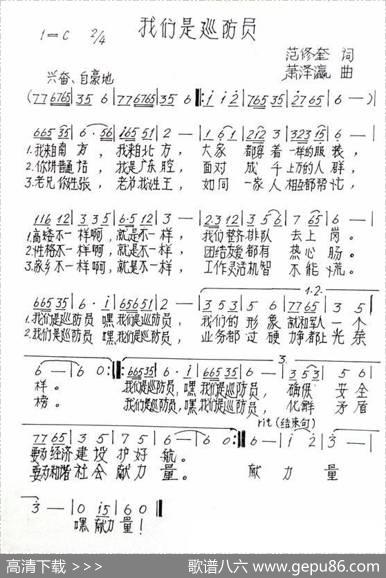 我们是巡防员
1=C 2/4
范修奎 词
萧泽瀛 曲
兴奋、自豪地
(77 6765 | 35 6 | 77 6765 | 35 6 ‖: i i 2 | 765 35 | i 2765 | 6 — ) |
665 35 | 6 · 56 | i65 51 | 2 — | 1 61 | 212 3 | 323 15 | 6 — |
1.我来自南方，我来自北方，大家都穿着一样的服装，
2.你讲普通话，我是广东腔，面对成千上万的人群，
3.老兄你姓张，老弟我姓王，如同一家人相互都帮忙，
116 12 | 3 3 5 | 6·5 12 | 3 — | 23 12 | 3 5 6 | 7 65 | 6 — |
1.高矮不一样啊，就是不一样，我们整齐排队去上岗。
2.性格不一样啊，就是不一样，团结友爱都有热心肠。
3.家乡不一样啊，就是不一样，工作灵活机智不能慌。
665 35 | 6 · i | 656 51 | 2 — | 3 5 3 | 5 6 | 77 65 | 3 5 |
1.我们是巡防员嘿我们是巡防员，我们的形象就和军人一个
2.我们是巡防员嘿我们是巡防员，业务都过硬争都上光荣
6 — | 6 0 :‖ 665 35 | 6 · i | 665 35 | 6 — | 3 5 3 | 5 6 |
样。我们是巡防员，嘿我们是巡防员，确保安全
榜。我们是巡防员，嘿我们是巡防员，化解矛盾
rit(结束句)
77 65 | 3 5 | 7 5 | 6 — | 6 0 :‖ 6 — | i 2 | 3 — |
要为经济建设护好航。
要为和谐社会献力量。献力量
3 — | 0 i5 | 6 0 ‖
嘿献力量！
高清下载 >>>
歌谱八六 www.gepu86.com